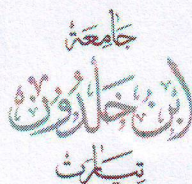 جامعة
ابن خلدون
تيارت